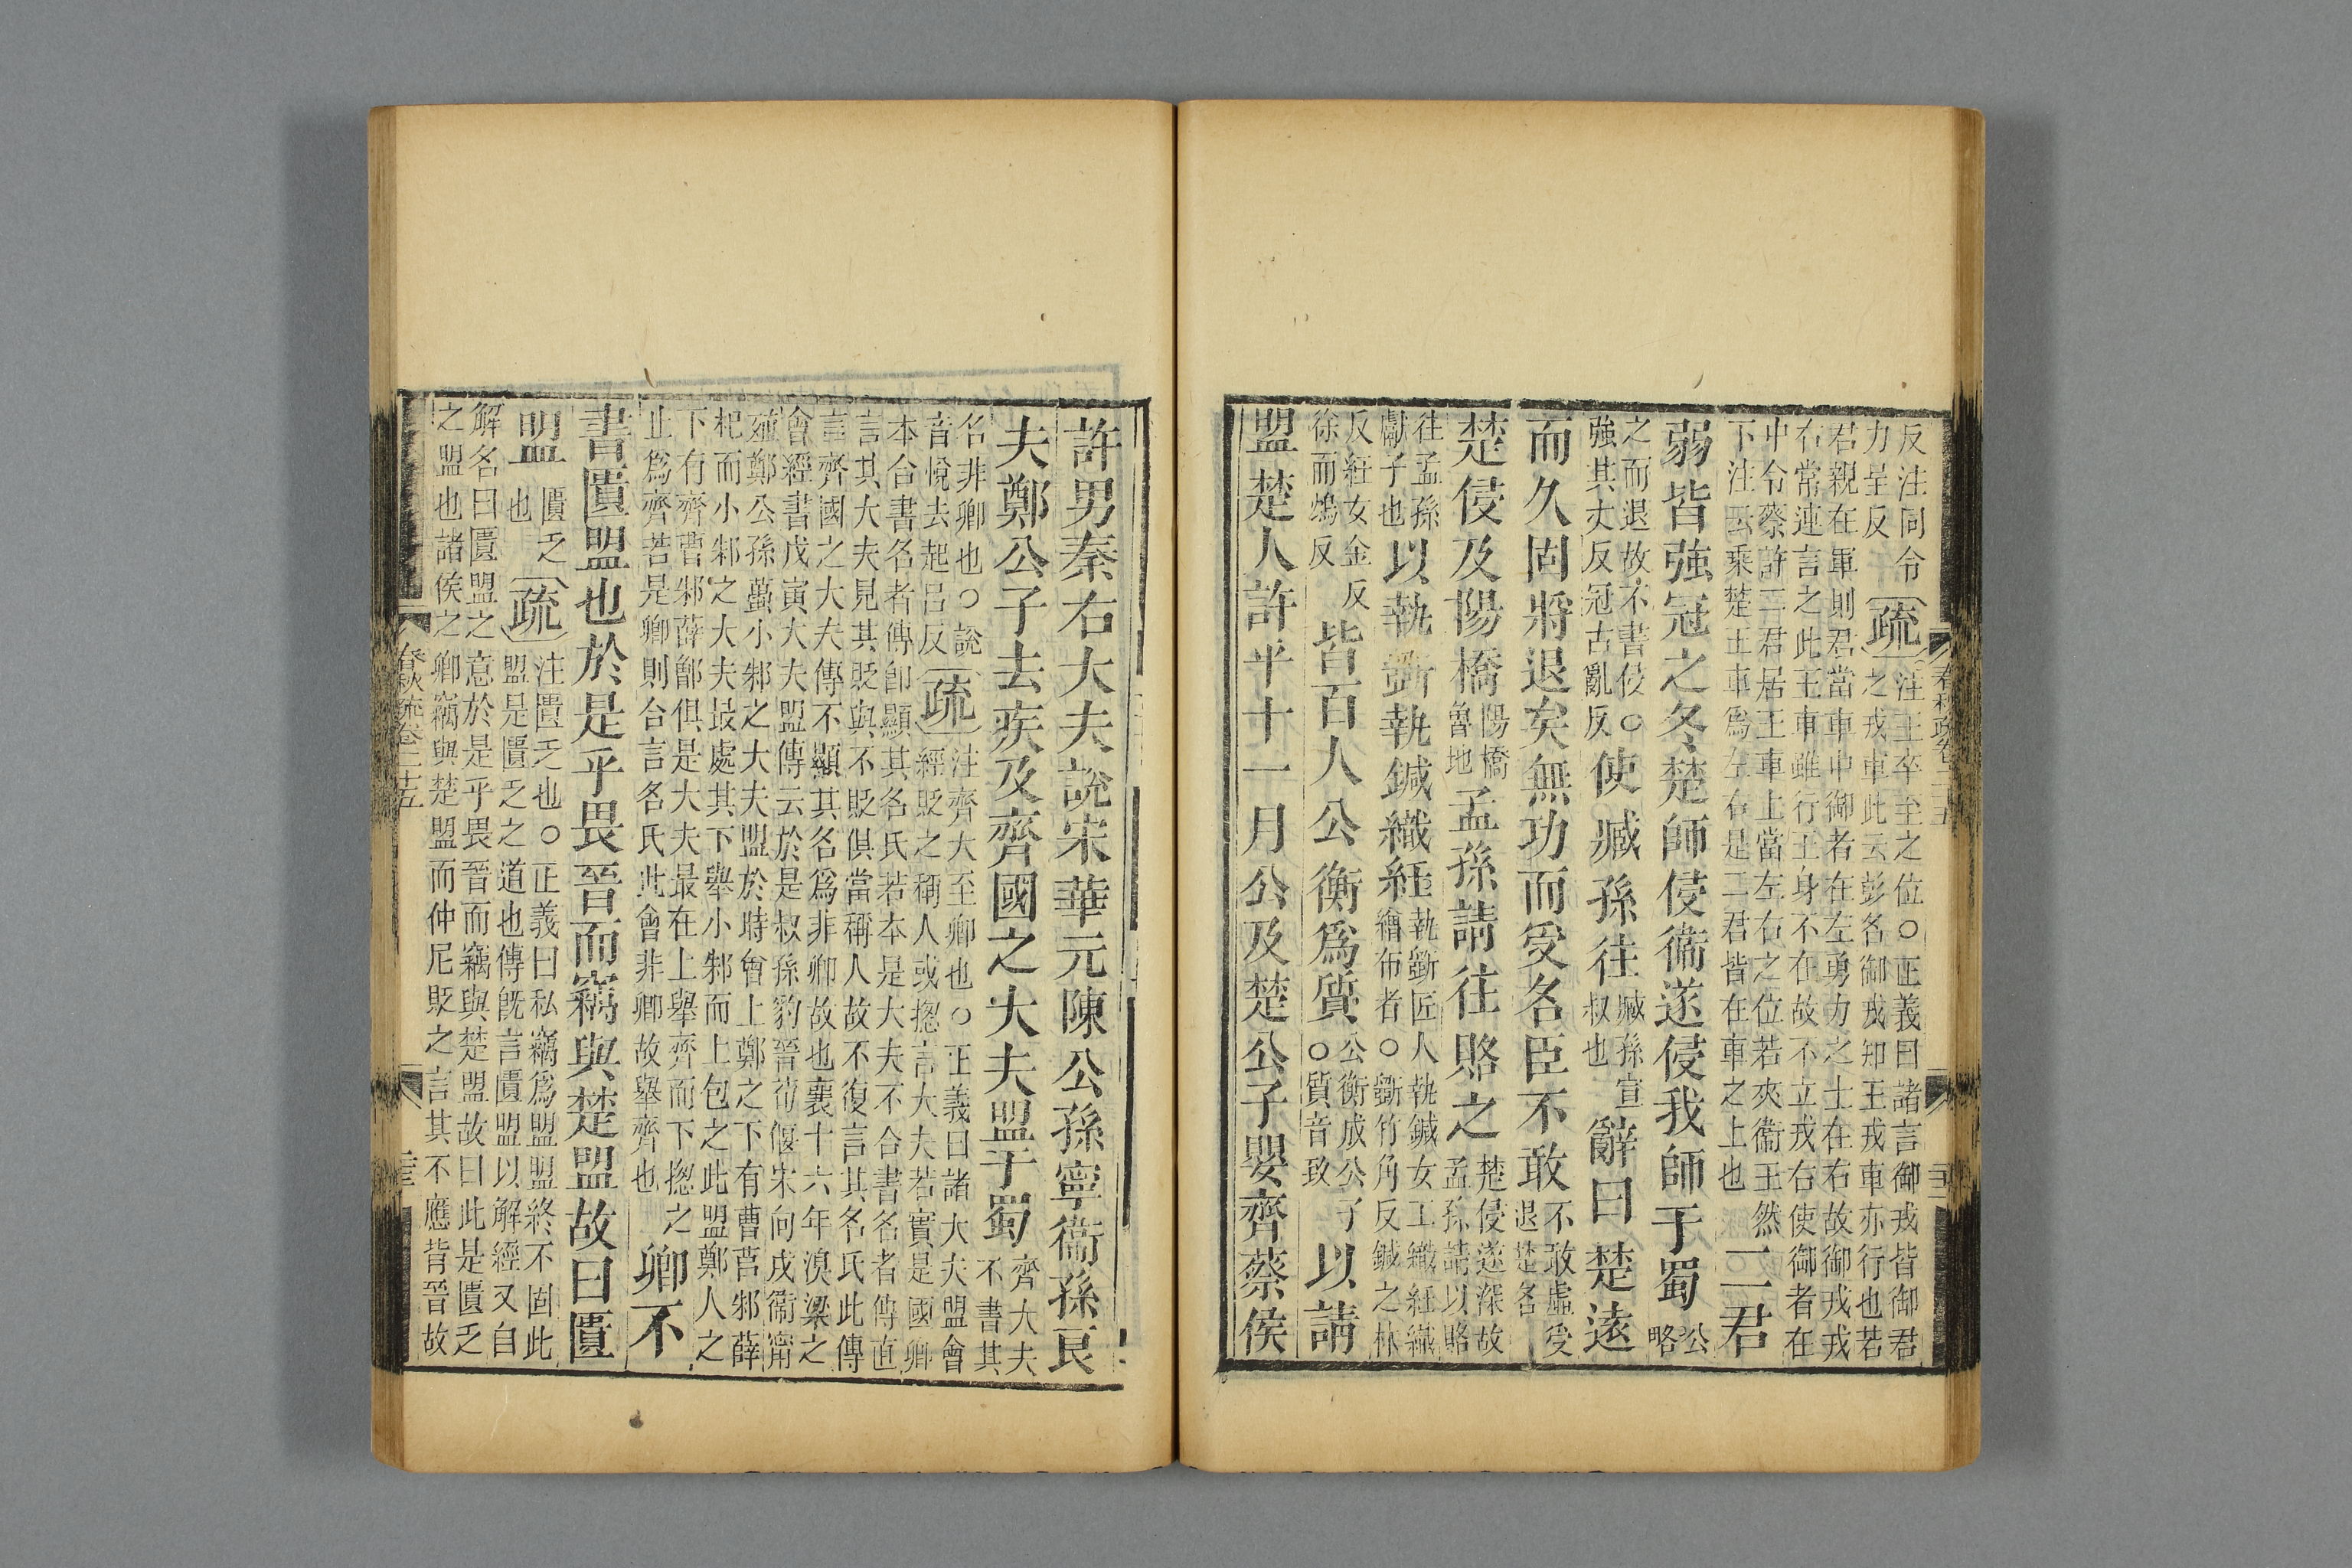 反注同令
力呈反疏注王卒至之位○正義曰諸言御戎皆御君
之戎車此云彭名御戎知王戎車亦行也若
君親在軍則君當車中御者在左勇力之士在右故御戎戎
右常連言之此王車雖行王身不在故不立戎右使御者在
中令蔡許二君居王車上當左右之位若夾衞王然
下注云乘楚王車爲左右是二君皆在車之上也二君
弱皆強冠之冬楚師侵衞遂侵我師于蜀公賂
之而退故不書侵○
強其丈反冠古亂反使臧孫往臧孫宣叔也辭曰楚遠
而久固將退矣無功而受名臣不敢不敢虛受退楚名
楚侵及陽橋陽橋魯地孟孫請往賂之楚侵遂深故孟孫請以賂
往孟孫
獻子也以執斲執鍼織紝執斲匠人執鍼女工織紝織繒布者○斲竹角反鍼之林
反紝女金反
徐而鴆反皆百人公衡爲質公衡成公子○質音致以請
盟楚人許平十一月公及楚公子嬰齊蔡侯
春秋疏卷二十五
許男秦右大夫說宋華元陳公孫寧衞孫良
夫鄭公子去疾及齊國之大夫盟于蜀齊大夫不書其
名非卿也○說
音悅去起呂反疏注齊大至卿也○正義曰諸大夫盟會
經貶之稱人或揔言大夫若實是國卿
本合書名者傳卽顯其名氏若本是大夫不合書名者傳直
言其大夫見其貶與不貶俱當稱人故不復言其名氏此傳
言齊國之大夫傳不顯其名爲非卿故也襄十六年溴梁之
會經書戊寅大夫盟傳云於是叔孫豹晉荀偃宋向戌衞甯
殖鄭公孫蠆小邾之大夫盟於時會上鄭之下有曹莒邾薛
杞而小邾之大夫最處其下舉小邾而上包之此盟鄭人之
下有齊曹邾薛鄫俱是大夫最在上舉齊而下揔之
止爲齊若是卿則合言名氏此會非卿故舉齊也卿不
書匱盟也於是乎畏晉而竊與楚盟故曰匱
盟匱乏也疏注匱乏也○正義曰私竊爲盟盟終不固此
盟是匱乏之道也傳旣言匱盟以解經又自
解名曰匱盟之意於是乎畏晉而竊與楚盟故曰此是匱乏
之盟也諸侯之卿竊與楚盟而仲尼貶之言其不應背晉故
春秋疏卷二十五